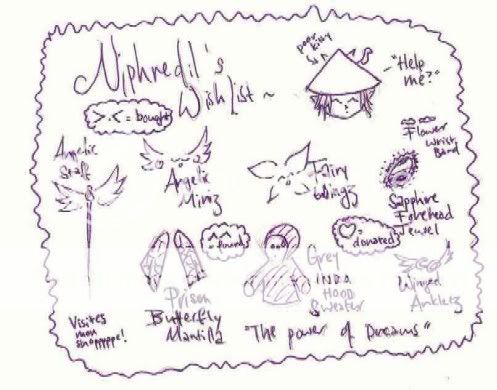 Niphredil's
Wish List ~
poor
kitty
~"Help
me?"
>.< = bought
Angelic
Staff
Angelic
Miniz
Fairy
Wingz
Flower
Wrist
Band
Sapphire
Forehead
Jewel
^^
= found
♡ =
donated
Prism
Butterfly
Mantilla
Grey
HOOD
Sweater
Winged
Ankletz
Visites
mon
"The power of Dreams"